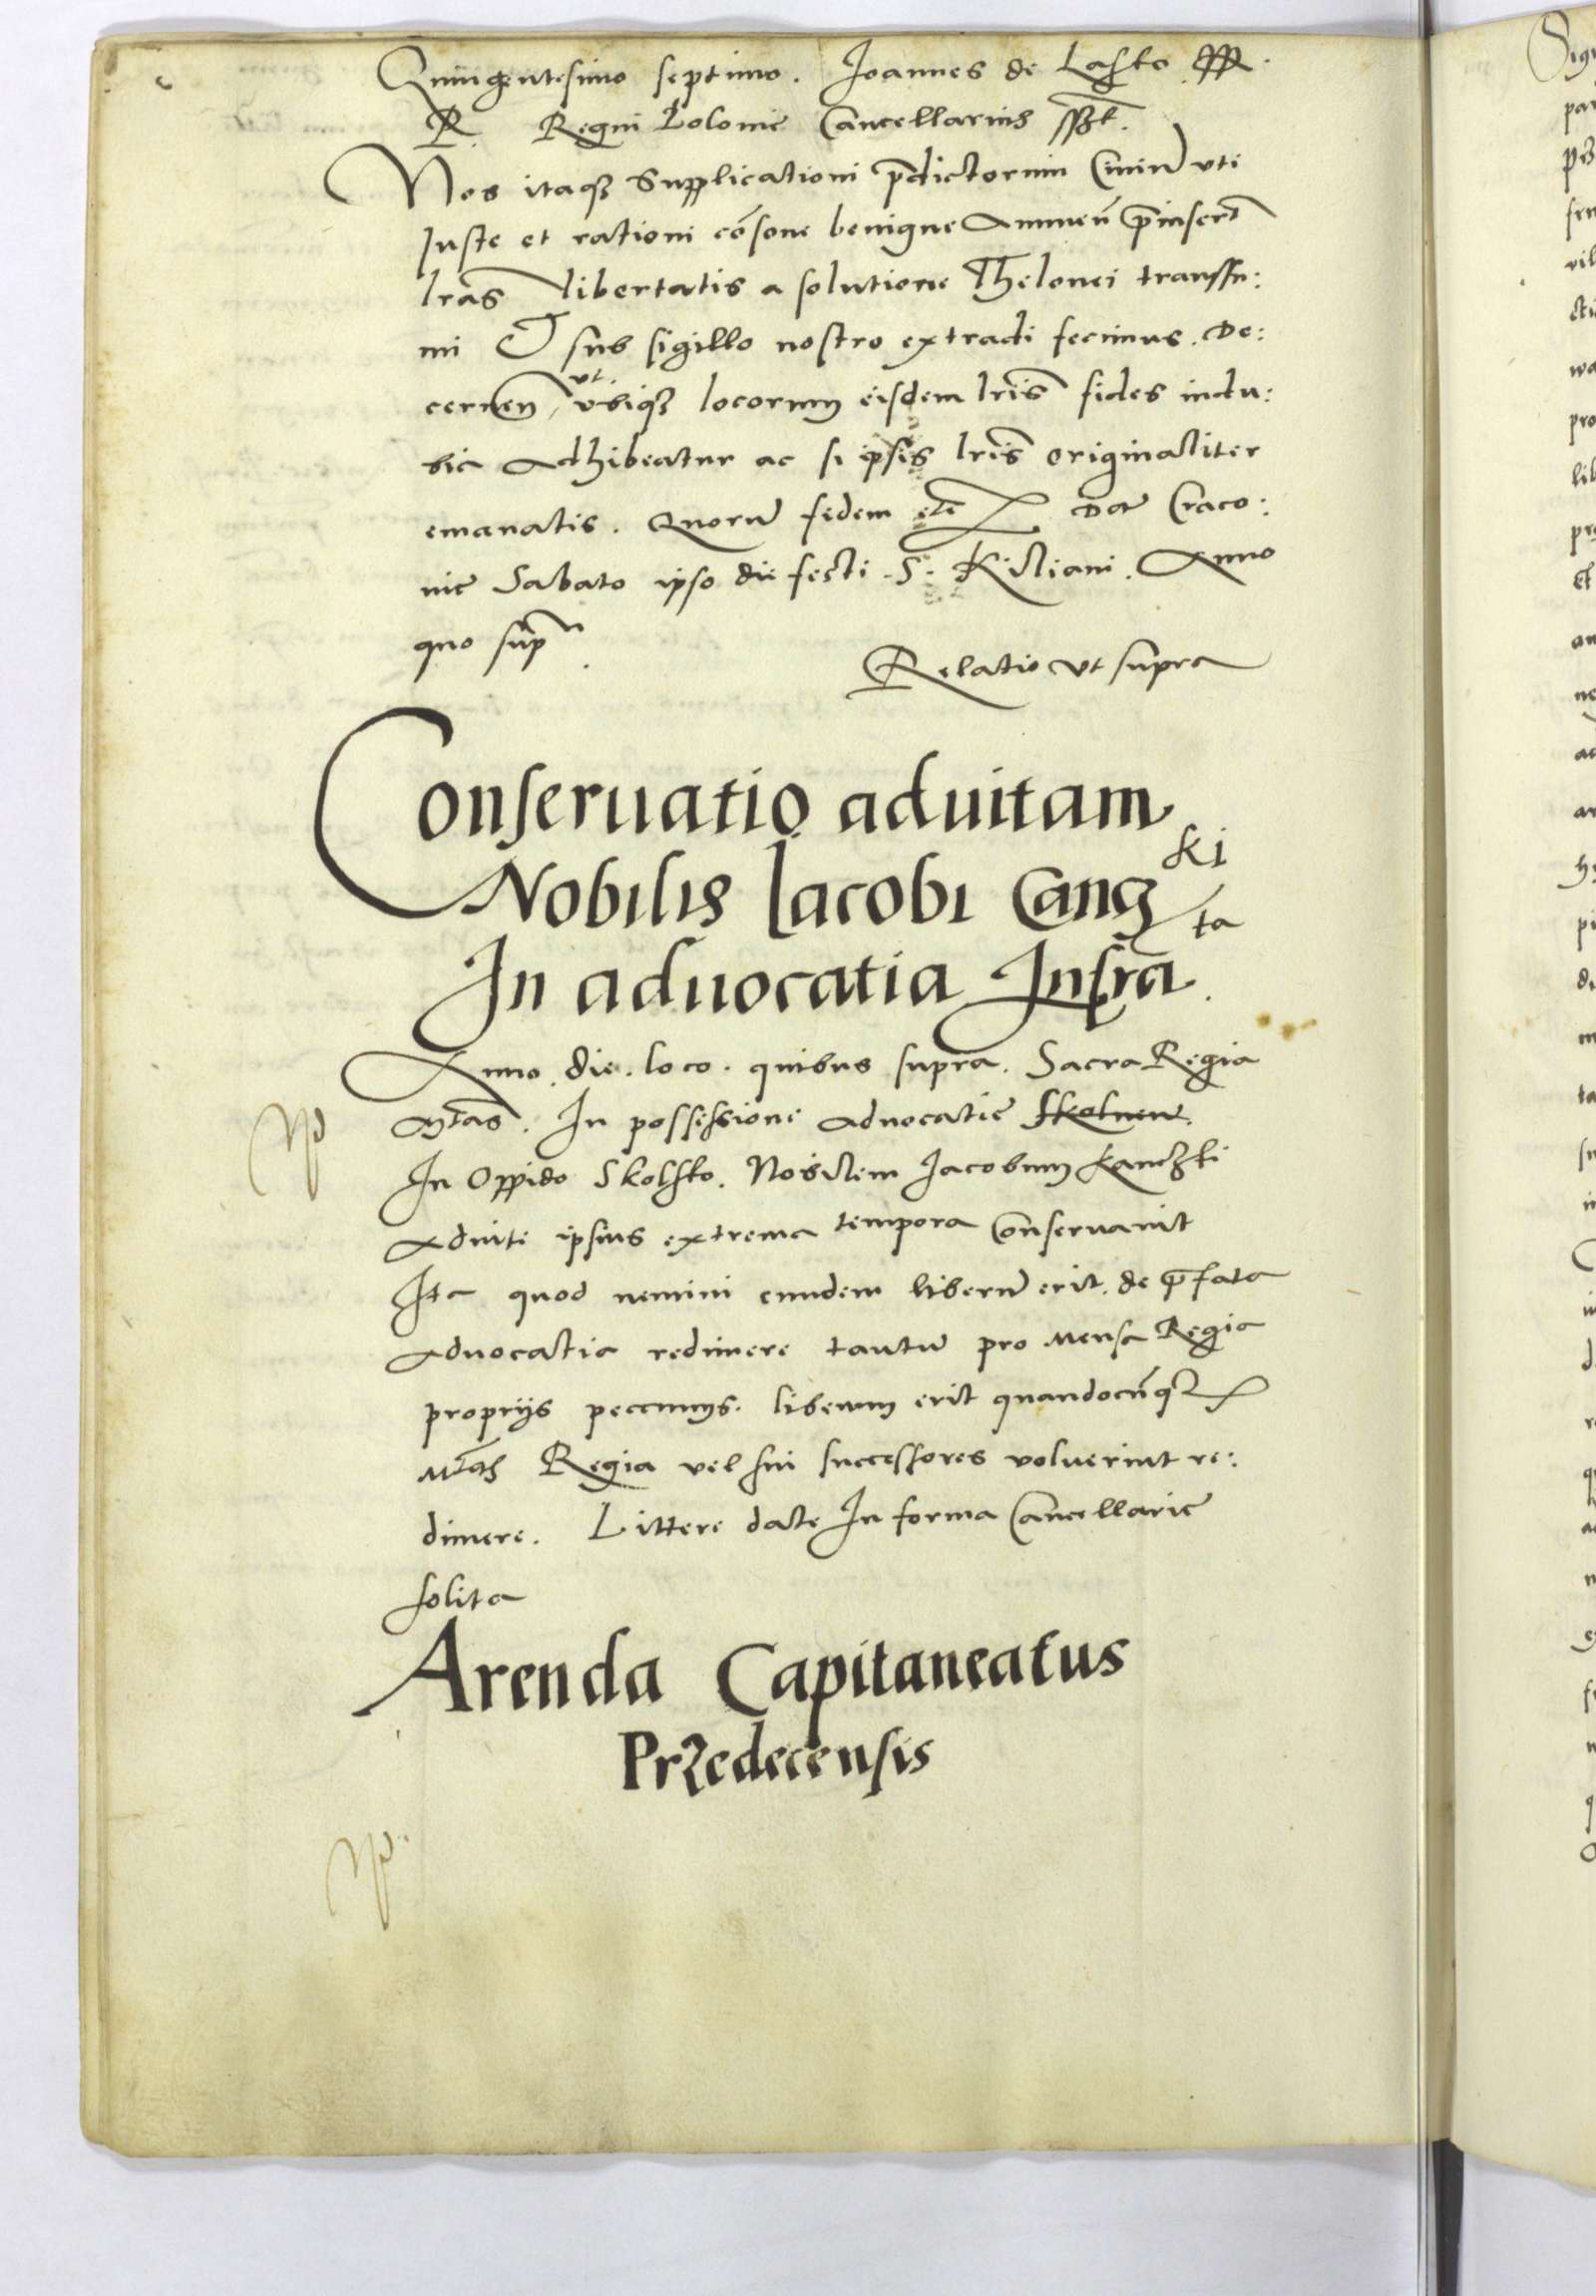 Quingentesimo septimo. Joannes de Lasko
R. Regni Polonie Cancellarius sszt.
Nos itaqz Supplicationi p̄dictorum Civiū uti
Juste et rationi cōsone benigne Annuen̄ p̄insert
lrās libertatis a solutione Thelonei transsu:
mi & sub sigillo nostro extradi fecimus. De:
cernen̄, ut ubiqz locorum eisdem lrīs fides indu:
bia Adhibeatur ac si ipsis lrīs originaliter
emanatis. Quorū fidem etc̄ Dat̄ Craco:
nie Sabato ipso die festi .S. Kiliani. Anno
quo sup̄.
Relatio ut supra
Conseruatio aduitam
Nobilis Jacobi Cancz ki
In aduocatia Infra ta
Anno. die. loco. quibus supra. Sacra Regia
Mtās. In possessione aduocatie Skolnen.
In Oppido Skolsko. Nobilem Jacobum Kanczki
Aduite ipsius extrema tempora Conseruauit
Ita quod nemini eundem liberū erit. de p̄fata
Aduocatia redimere tantū pro mensa Regia
proprijs peccunijs. liberum erit quandocūqz
Mtās Regia vel sui successores voluerint re:
dimere. Littere date In forma Cancellarie
solita
Arenda Capitaneatus
Przedecensis